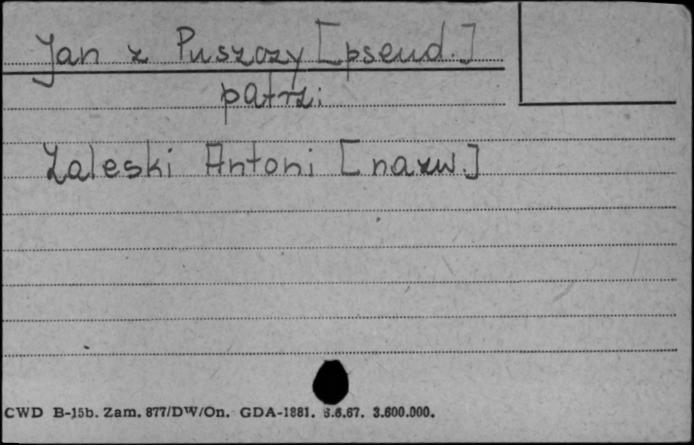 Jan z Puszczy [pseud.]
patrz:
Zaleski Antoni [nazw.]
CWD B-15b. Zam. 877/DW/On. GDA-1881. 6.6.67. 3.600.000.